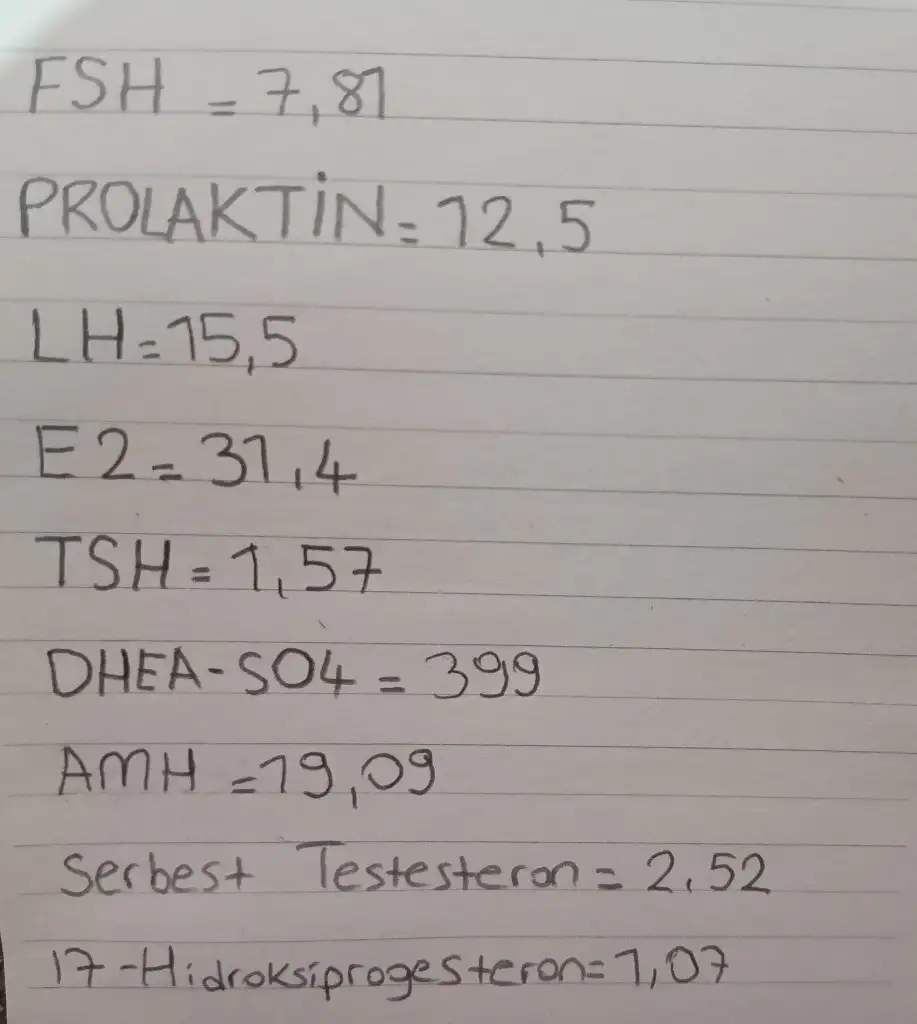 FSH = 7,81
PROLAKTİN = 12,5
LH = 15,5
E2 = 31,4
TSH = 1,57
DHEA-SO4 = 399
AMH = 19,09
Serbest Testesteron = 2,52
17-Hidroksiprogesteron = 1,07